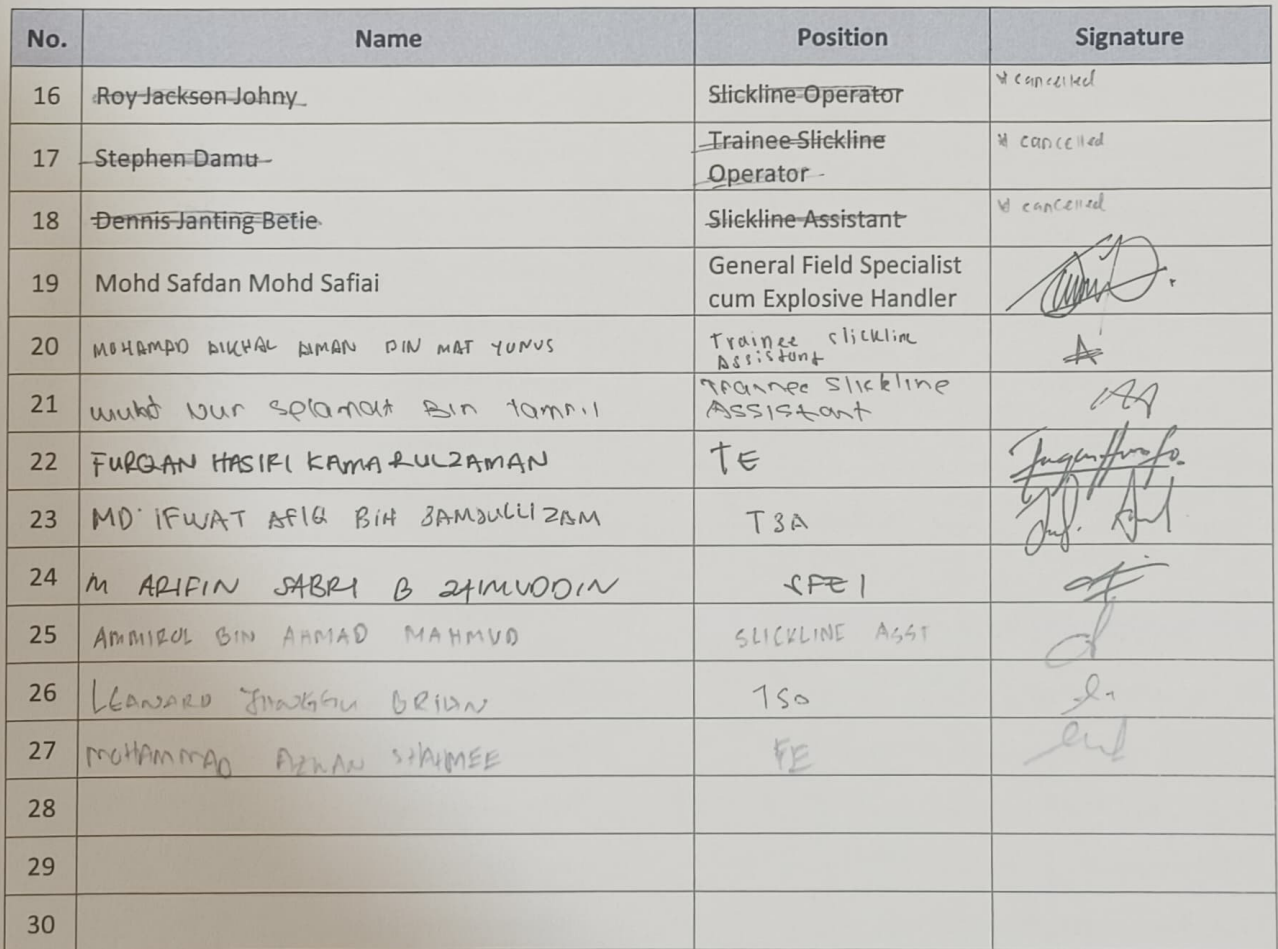 No. Name Position Signature
16 Roy Jackson Johny Slickline Operator * cancelled
17 Stephen Damu Trainee Slickline
Operator * cancelled
18 Dennis Janting Betie Slickline Assistant * cancelled
19 Mohd Safdan Mohd Safiai General Field Specialist
cum Explosive Handler
20 MOHAMAD AIKHAL AIMAN BIN MAT YUNUS Trainee Slickline
Assistant
21 Nur Selamat Bin Tamril Trainee Slickline
ASSISTANT
22 FURQAN HASIRI KAMARULZAMAN TE
23 MD IFWAT AFIQ BIN SAMSULLIZAM TSA
24 M ARIFIN SABRI B ZAIMUDDIN SFE 1
25 AMMIRUL BIN AHMAD MAHMUD SLICKLINE ASST
26 LEANARD BRIAN TSO
27 MOHAMMAD AZWAN SHAHMEE FE
28
29
30